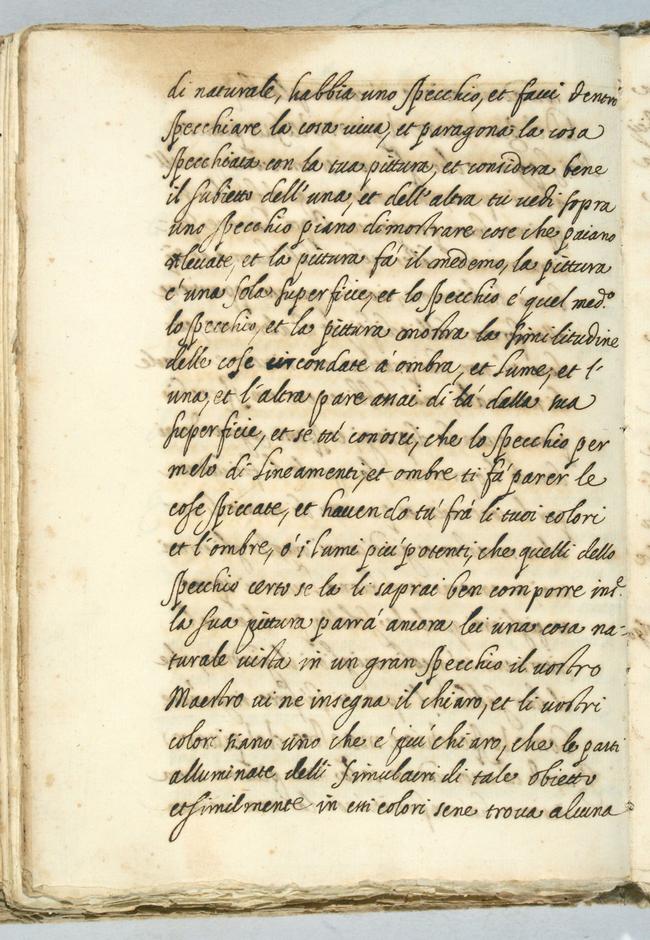 di naturale, habbia uno specchio, et favvi dentro
specchiare la cosa viva, et paragona la cosa
specchiata con la tua pittura, et considera bene
il subietto dell'una, et dell'altra tu vedi sopra
uno specchio piano dimostrare cose che paiano
rilevate, et la pittura fà il medemo, la pittura
é una sola superficie, et lo specchio é quel med.o
lo specchio, et la pittura mostra la similitudine
delle cose circondate à ombra, et lume, et l'
una, et l'altra pare assai di là dalla sua
superficie, et se tù conosci, che lo specchio per
melo di lineamenti, et ombre ti fà parer le
cose spiccate, et havendo tù frà li tuoi colori
et l'ombre, ò i lumi più potenti, che quelli dello
specchio certo se la li saprai ben comporre ins.e
la sua pittura parrà ancora lei una cosa na-
turale vista in un gran specchio il vostro
Maestro vi ne insegna il chiaro, et li vostri
colori siano uno che é più chiaro, che le parti
alluminate delli simulacri di tale obietto
et similmente in essi colori sene trova alcuna